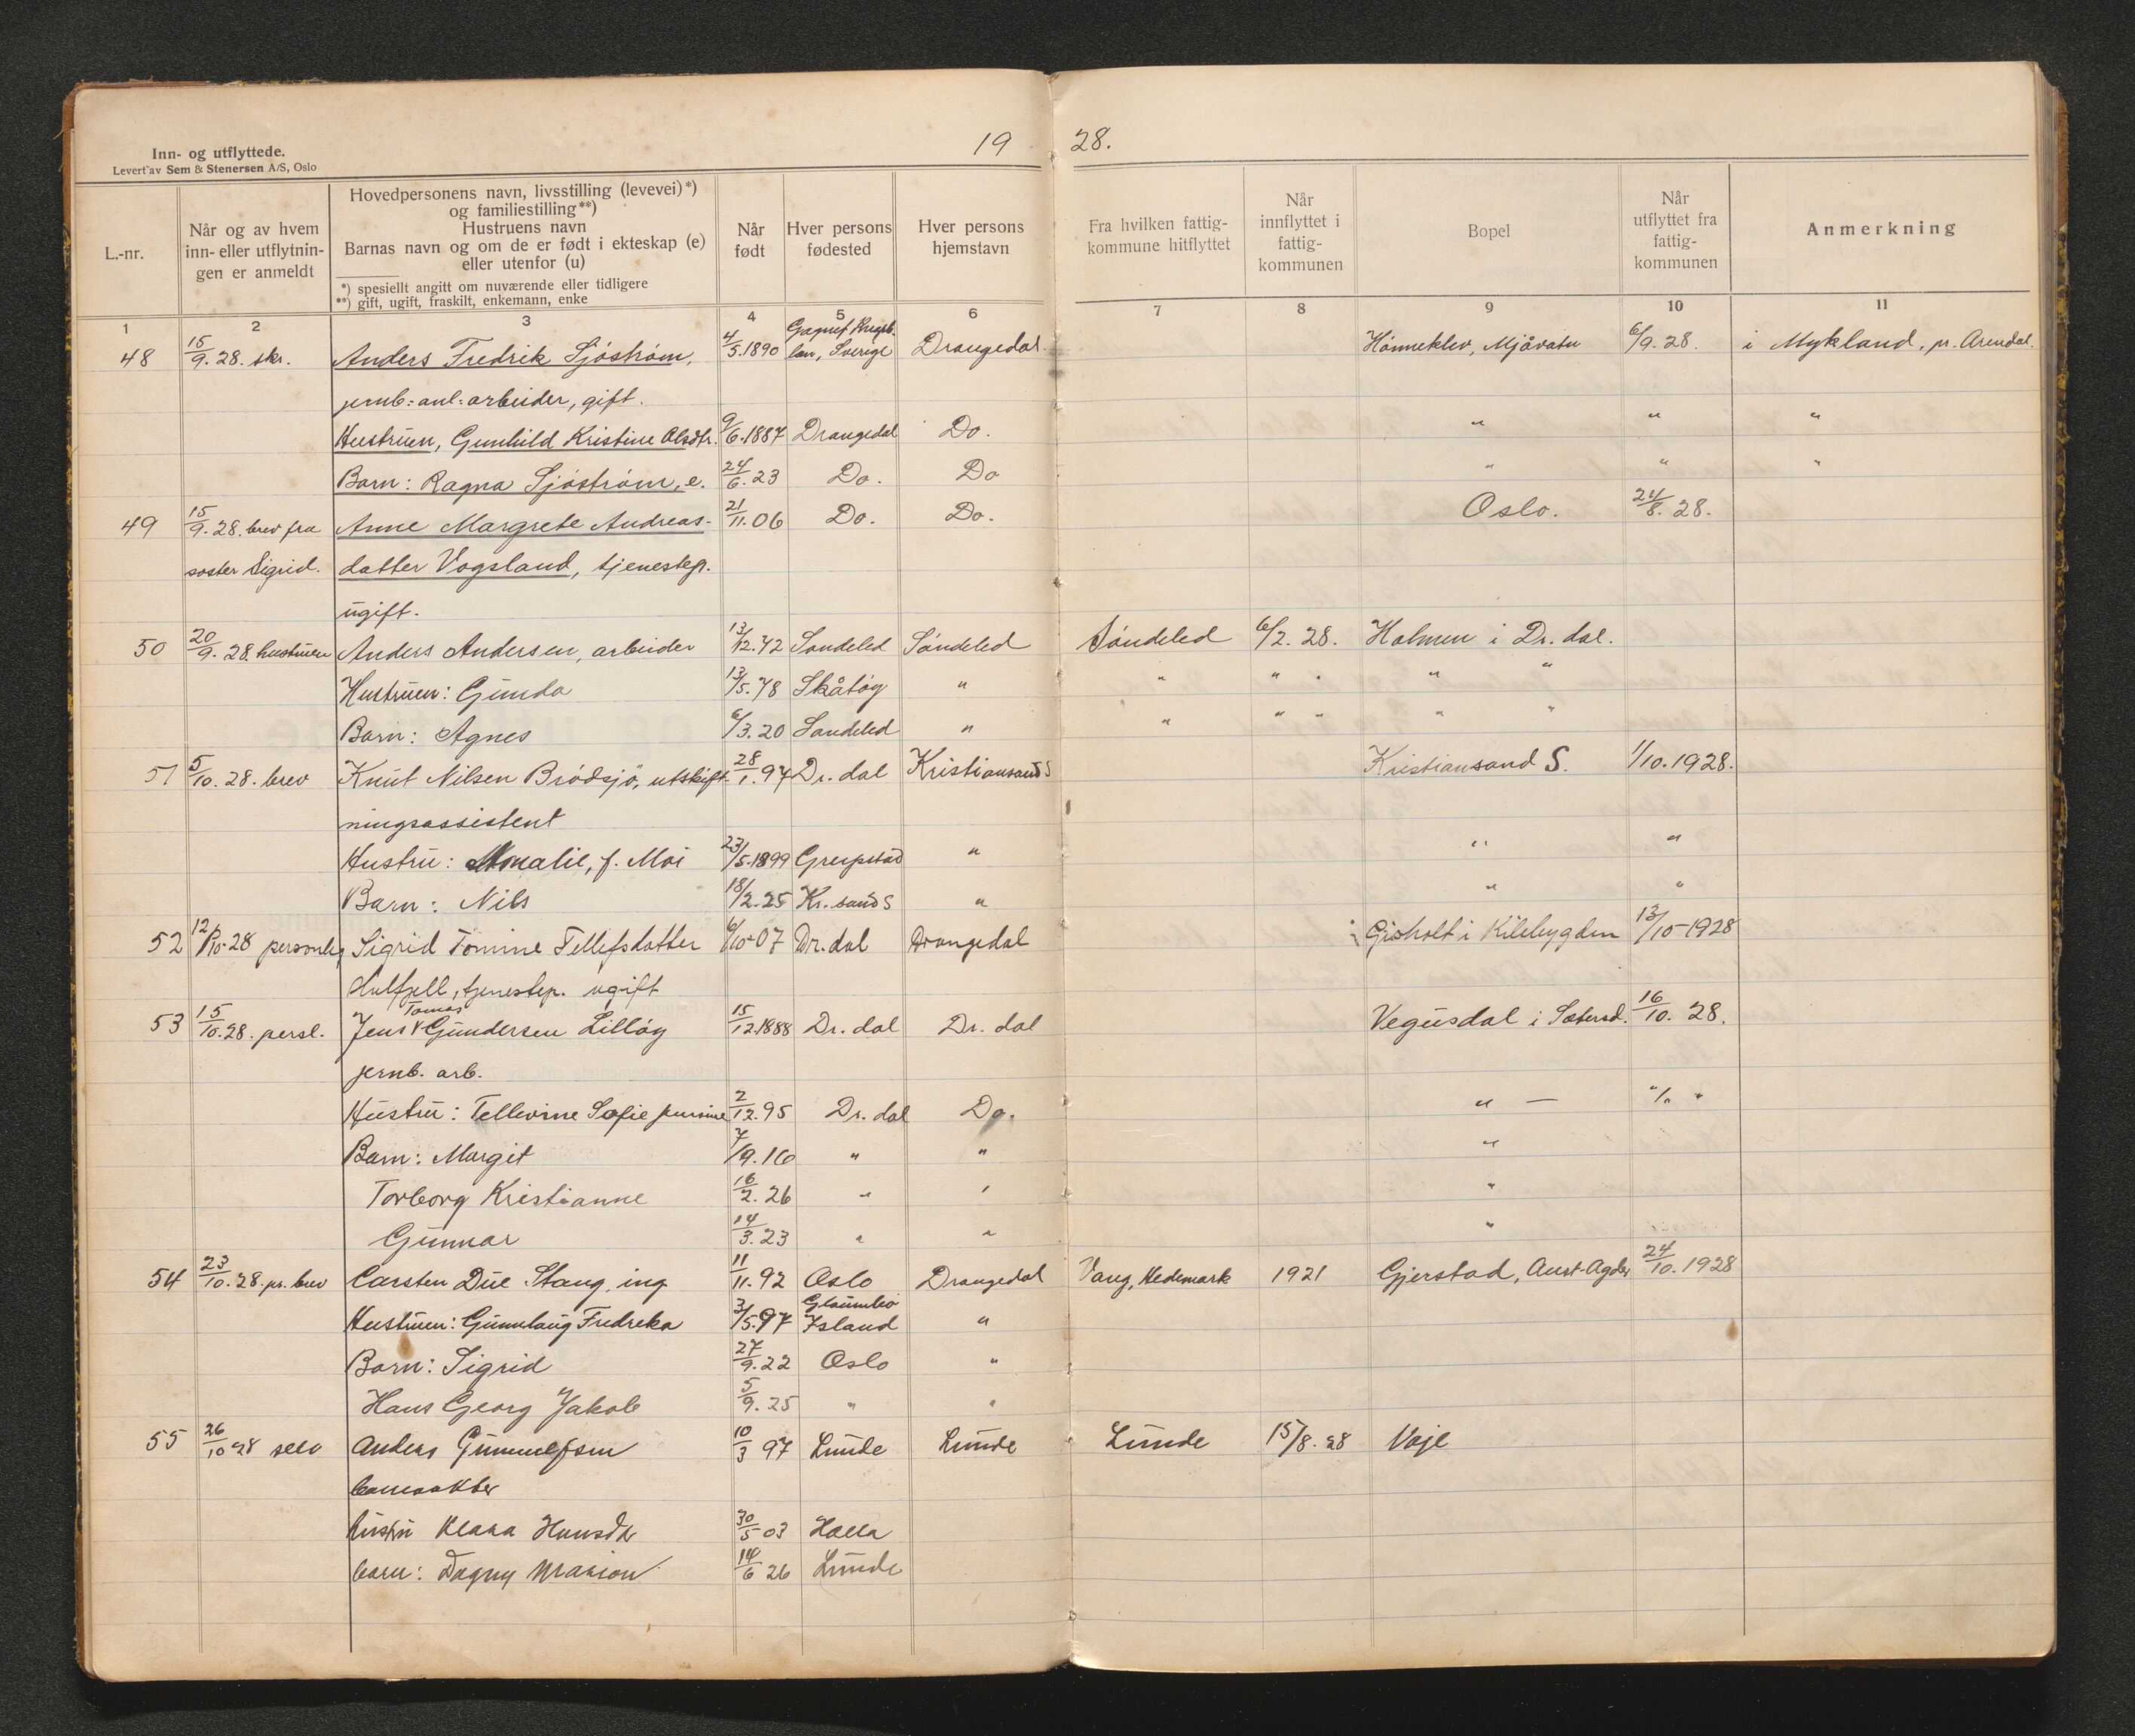 19 28.
Inn- og utflyttede.
Levert av Sem & Stenersen A/S, Oslo
L.-nr.
Når og av hvem inn- eller utflytnin-gen er anmeldt
Hovedpersonens navn, livsstilling (levevei)*)
og familiestilling**)
Hustruens navn
Barnas navn og om de er født i ekteskap (e)
eller utenfor (u)
*) spesiellt angitt om nuværende eller tidligere
**) gift, ugift, fraskilt, enkemann, enke
Når født
Hver persons fødested
Hver persons hjemstavn
Fra hvilken fattig-kommune hitflyttet
Når innflyttet i fattig-kommunen
Bopel
Når utflyttet fra fattig-kommunen
Anmerkning
1 2 3 4 5 6 7 8 9 10 11
Gagnef
48 15/9.28. skr. Anders Fredrik Sjöström, 4/5.1890 lan, Sverige Drangedal. Hönneklev, Mjåvatn 6/9.28. i Mykland, pr. Arendal.
jernb:anl:arbeider, gift.
Hustruen, Gunhild Kristine Olsdtr. 9/6.1887 Drangedal Do. " " "
Barn: Ragna Sjöström, e. 24/6.23 Do. Do " " "
49 15/9.28. brev fra Anne Margrete Andreas- 21/11.06 Do. Do. Oslo. 24/8.28.
søster Sigrid. datter Vogsland, tjenestep.
ugift.
50 20/9.28. hustruen Anders Andersen, arbeider 13/12.72 Søndeled Søndeled Søndeled 6/2.28. Holmen i Dr. dal.
Hustruen: Gunda 13/5.78 Skåtøy " " " " " "
Barn: Agnes 6/3.20 Søndeled " " " " " "
51 5/10.28. brev Knut Nilsen Brødsjø, utskift- 28/1.97 Dr. dal Kristiansand S Kristiansand S. 1/10.1928.
ningsassistent
Hustru: Amalie, f. Moi 23/5.1899 Greipstad " " "
Barn: Nils 18/2.25 Kr. sand S " " "
52 12/10-28 personlig Sigrid Tomine Tellefsdatter 6/10-07 Dr. dal Drangedal i Gisholt i Kilebygden 13/10-1928
Hulfjell, tjenestep. ugift
Tomas
53 15/10.28. persl. Jens Gundersen Lilløy 15/12.1888 Dr. dal Dr. dal Vegusdal i Setersd. 16/10.28.
jernb. arb.
Hustru: Tellevine Sofie 2/12.95 Dr. dal Do. " — "/" "
Barn: Margit 7/9.16 " " "
Torborg Kristianne 16/2.26 " " "
Gunnar 14/3.23 " " "
54 23/10.28. pr. brev Carsten Due Stang, ing. 11/11.92 Oslo Drangedal Vang, Hedemark 1921 Gjerstad, Aust-Agder 24/10.1928
Hustruen: Gunnlaug Fredreka 3/5.97 Glaumbø Island "
Barn: Sigrid 27/9.22 Oslo "
Hans Georg Jakob 5/9.25 " "
55 26/10 28 selv Anders Gunnulfsen 10/3 97 Lunde Lunde Lunde 15/8.28 Voje
banevokter
hustru Klara Hansdtr 30/5 03 Holla
barn: Dagny Marion 14/6 26 Lunde